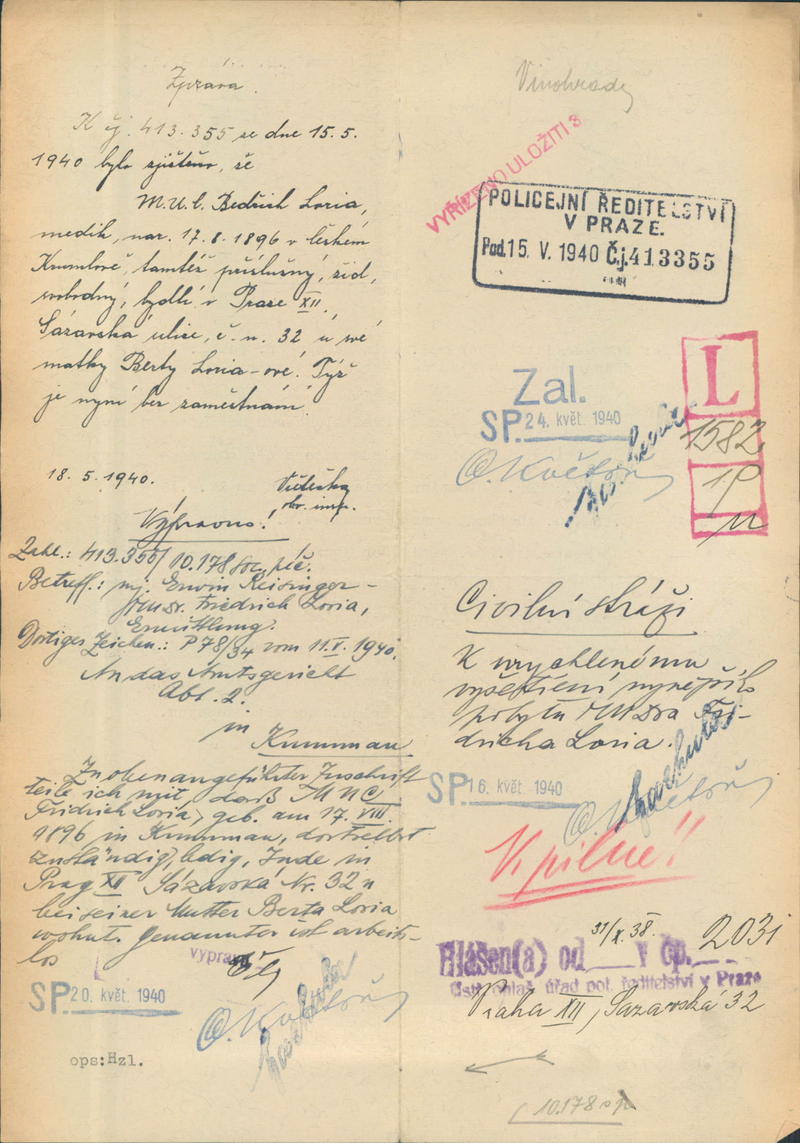 Zpráva.
K čj. 413.355 ze dne 15.5.
1940 bylo zjištěno, že
M.U.C. Bedřich Loria,
medik, nar. 17.8.1896 v Českém
Krumlově, tamtéž příslušný, žid,
svobodný, bydlí v Praze XII,
Sázavská ulice, č. n. 32 u své
matky Berty Loria-ové. Týž
je nyní bez zaměstnání.
18.5.1940.
obr. insp.
Výpravně!
Zahl.: 413.355/10.178 soc. péč.
Betreff.: mj. Erwin Reisinger -
MUDr. Friedrich Loria,
Ermittlung.
Dortiges Zeichen.: P 78/34 vom 11.V.1940.
An das Amtsgericht
Abt. 2.
in
Krummau
Zu obenangeführter Zuschrift
teile ich mit, dass MUC
Fridrich Loria, geb. am 17.VIII.
1896 in Krummau, dortselbst
zuständig, ledig, Jude in
Prag XII Sázavská Nr. 32 n
bei seiner Mutter Berta Loria
wohnt. Genannter ist arbeits-
los
SP. 20. květ. 1940
O. Květoň
ops:Hzl.
Vinohrady
VYŘÍZENO ULOŽITI 3
POLICEJNÍ ŘEDITELSTVÍ
V PRAZE.
Pod. 15. V. 1940 Čj. 413355
L
Zal.
SP. 24. květ. 1940
1582
O. Květoň
19
Civilní stráži
K urychlenému
vyšetření nynějšího
pobytu MUDra Fri-
dricha Loria.
SP. 16. květ. 1940
O. Květoň
V. pilné!!
31/X.38. 2031
Hlášen(a) od v čp.
Ústř. ohlaš. úřad pol. ředitelství v Praze
Praha XII, Sázavská 32
10.178 s p